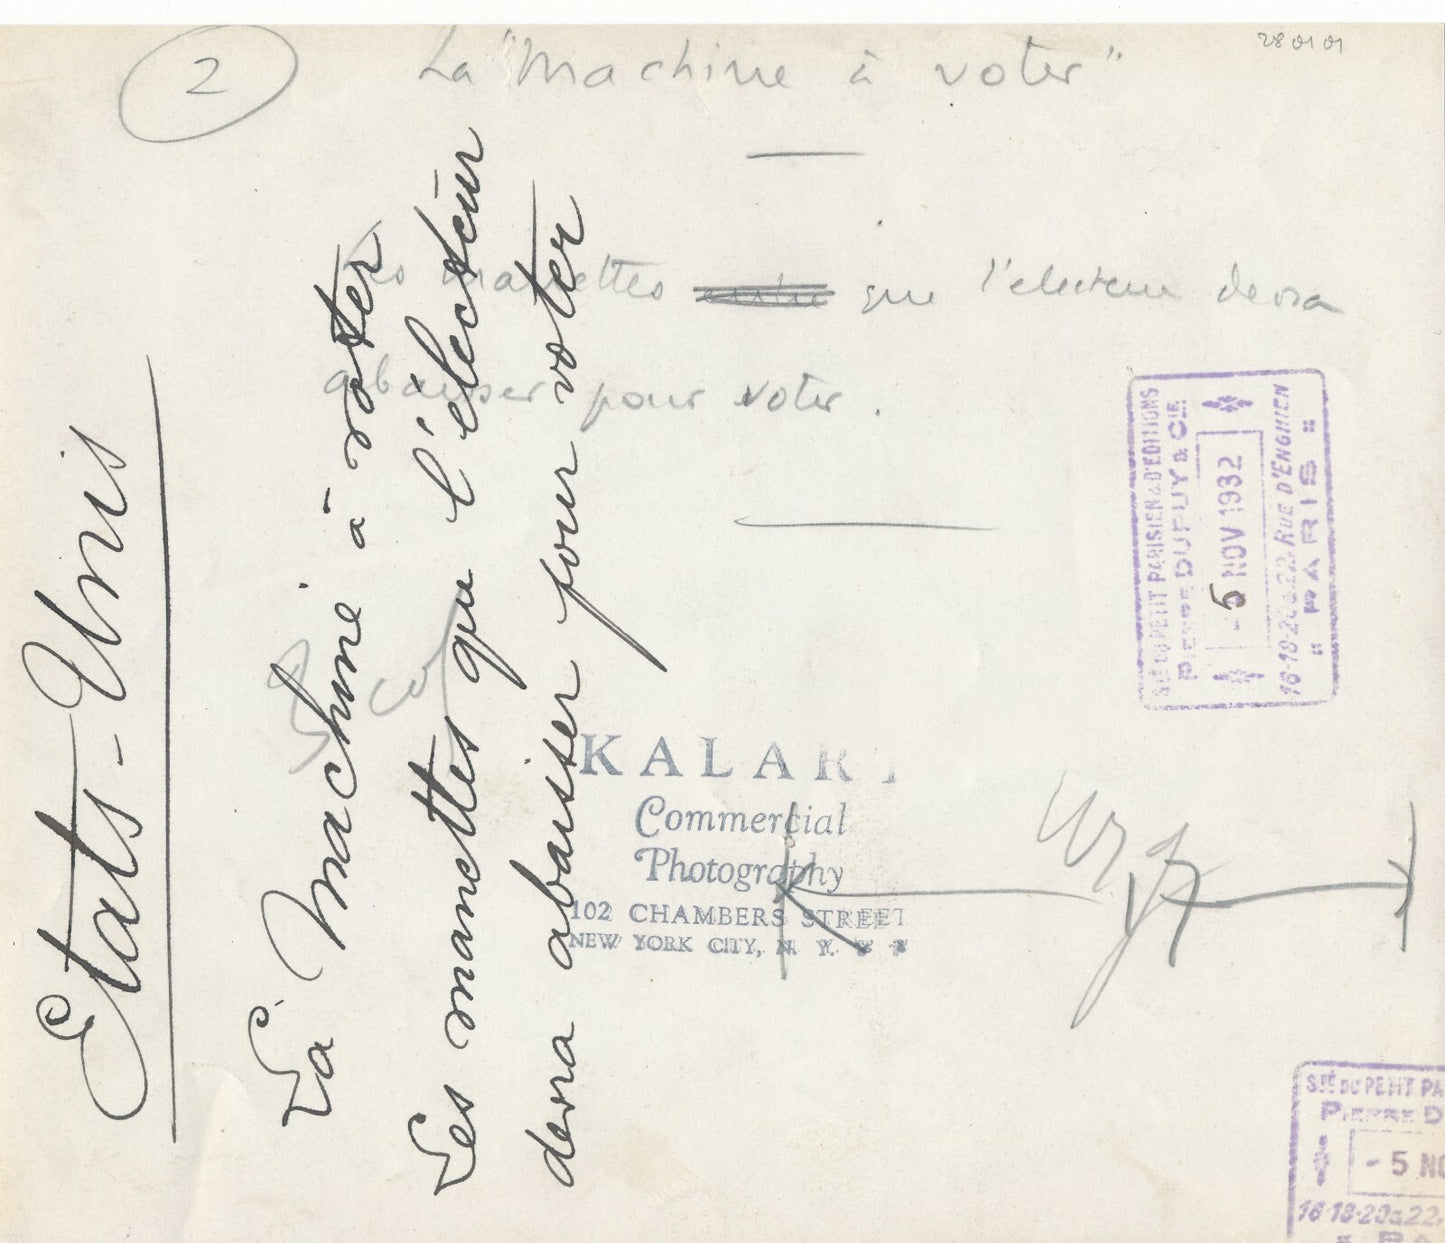 2
La "Machine à voter"
280101
manettes que l'electeur devra
abaisser pour voter.
Etats-Unis
La Machine à voter
Les manettes que l'électeur
devra abaisser pour voter
KALART
Commercial
Photography
102 CHAMBERS STREET
NEW YORK CITY, N. Y.
Sté DU PETIT PARISIEN & D'EDITIONS
PIERRE DUPUY & CIE
- 5 NOV 1932
16-18-20 a 22, RUE D'ENGHIEN
" PARIS "
Sté DU PETIT PA
PIERRE D
- 5 NO
16-18-20 a 22,
" PA